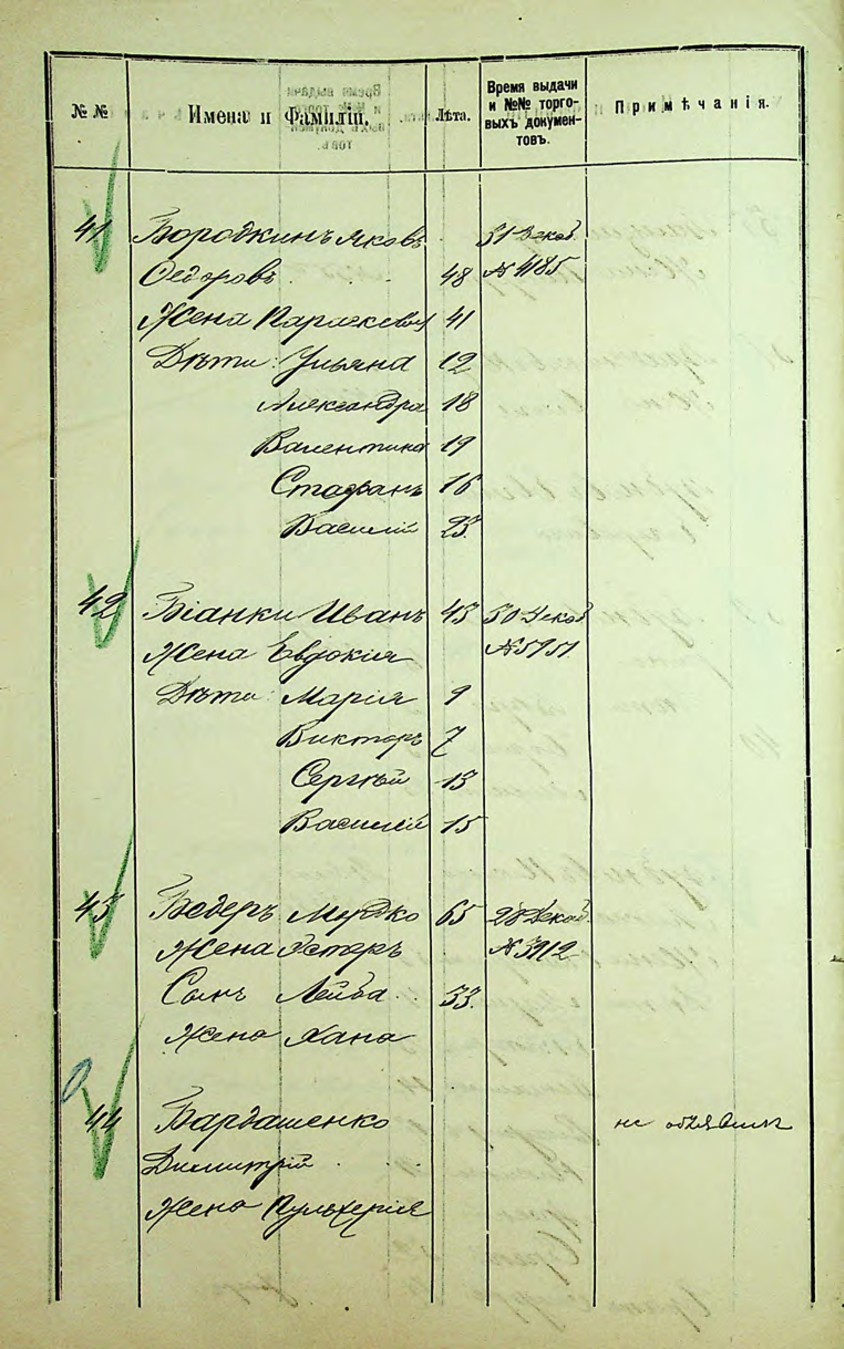 № №
Имена и Фамиліи.
Лѣта.
Время выдачи
и №№ торго-
выхъ докумен-
товъ.
Примѣчанія.
41 Бородкинъ Яковъ 31 Декаб.
Ѳедоровъ 48 № 4185
Жена Параскева 41
Дѣти: Ульяна 12
Александра 18
Валентина 19
Стафанъ 16
Василій 23
42 Біанки Иванъ 43 30 Декаб
Жена Евдокія
Дѣти: Марія 9
Викторъ 7
Сергѣй 13
Василій 15
43 Бедеръ Мордко 65 28 Декаб.
Жена Эстеръ № 3912
Сынъ Лейба 33.
Жена Хана
44 Бардашенко не объявилъ
Димитрій
Жена Пульхерія